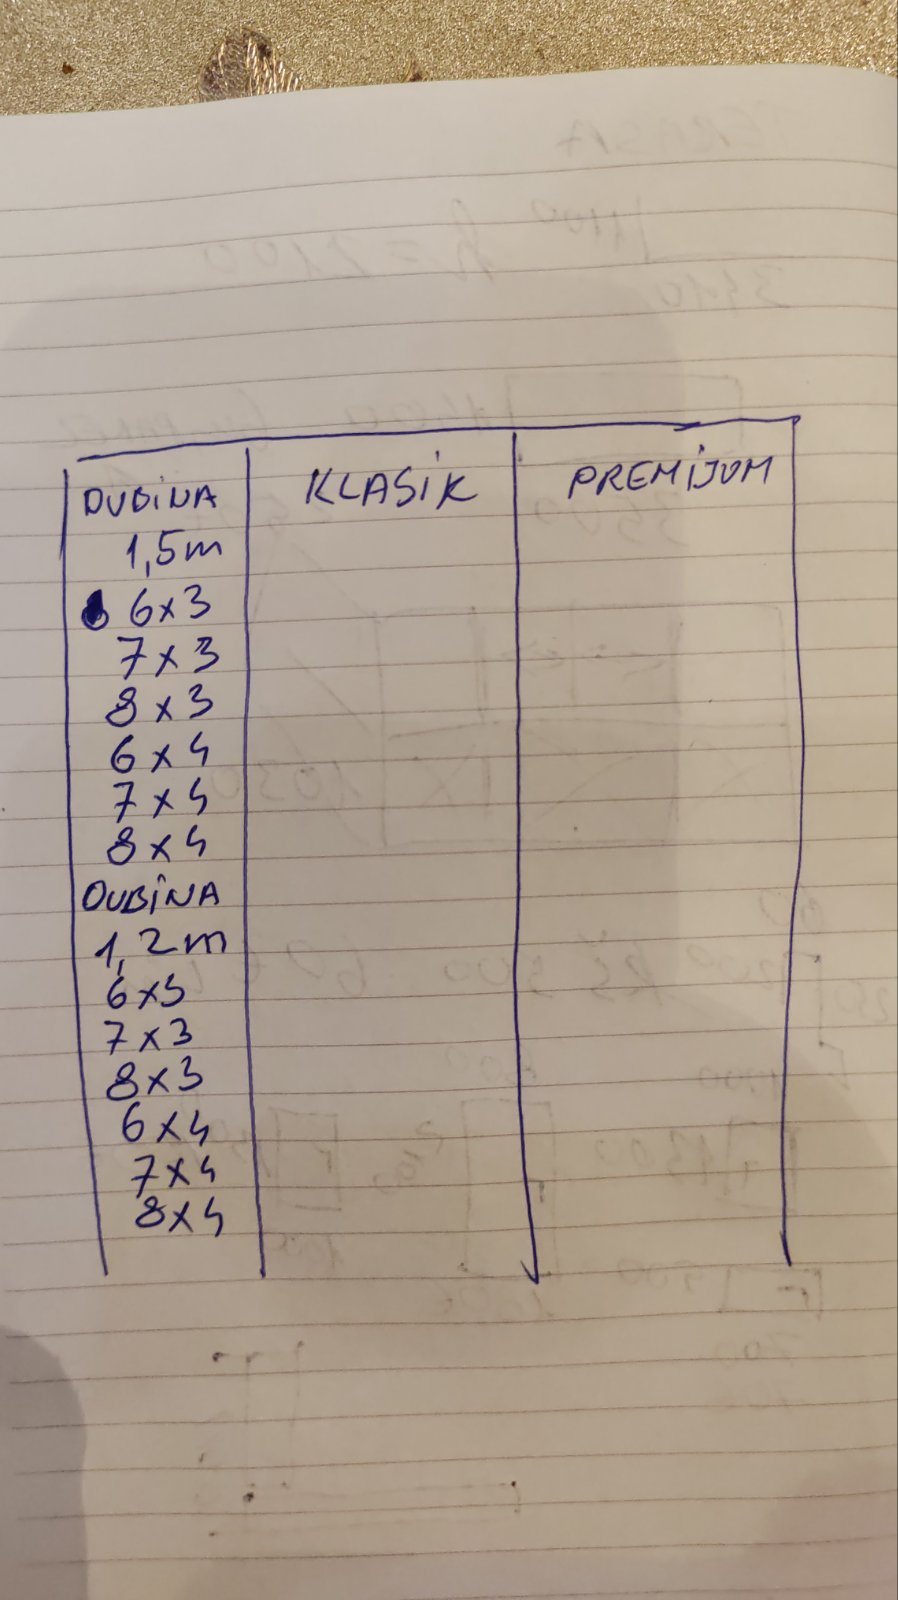 DUBINA KLASIK PREMIJUM
1,5m
6x3
7x3
8x3
6x4
7x4
8x4
DUBINA
1,2m
6x3
7x3
8x3
6x4
7x4
8x4